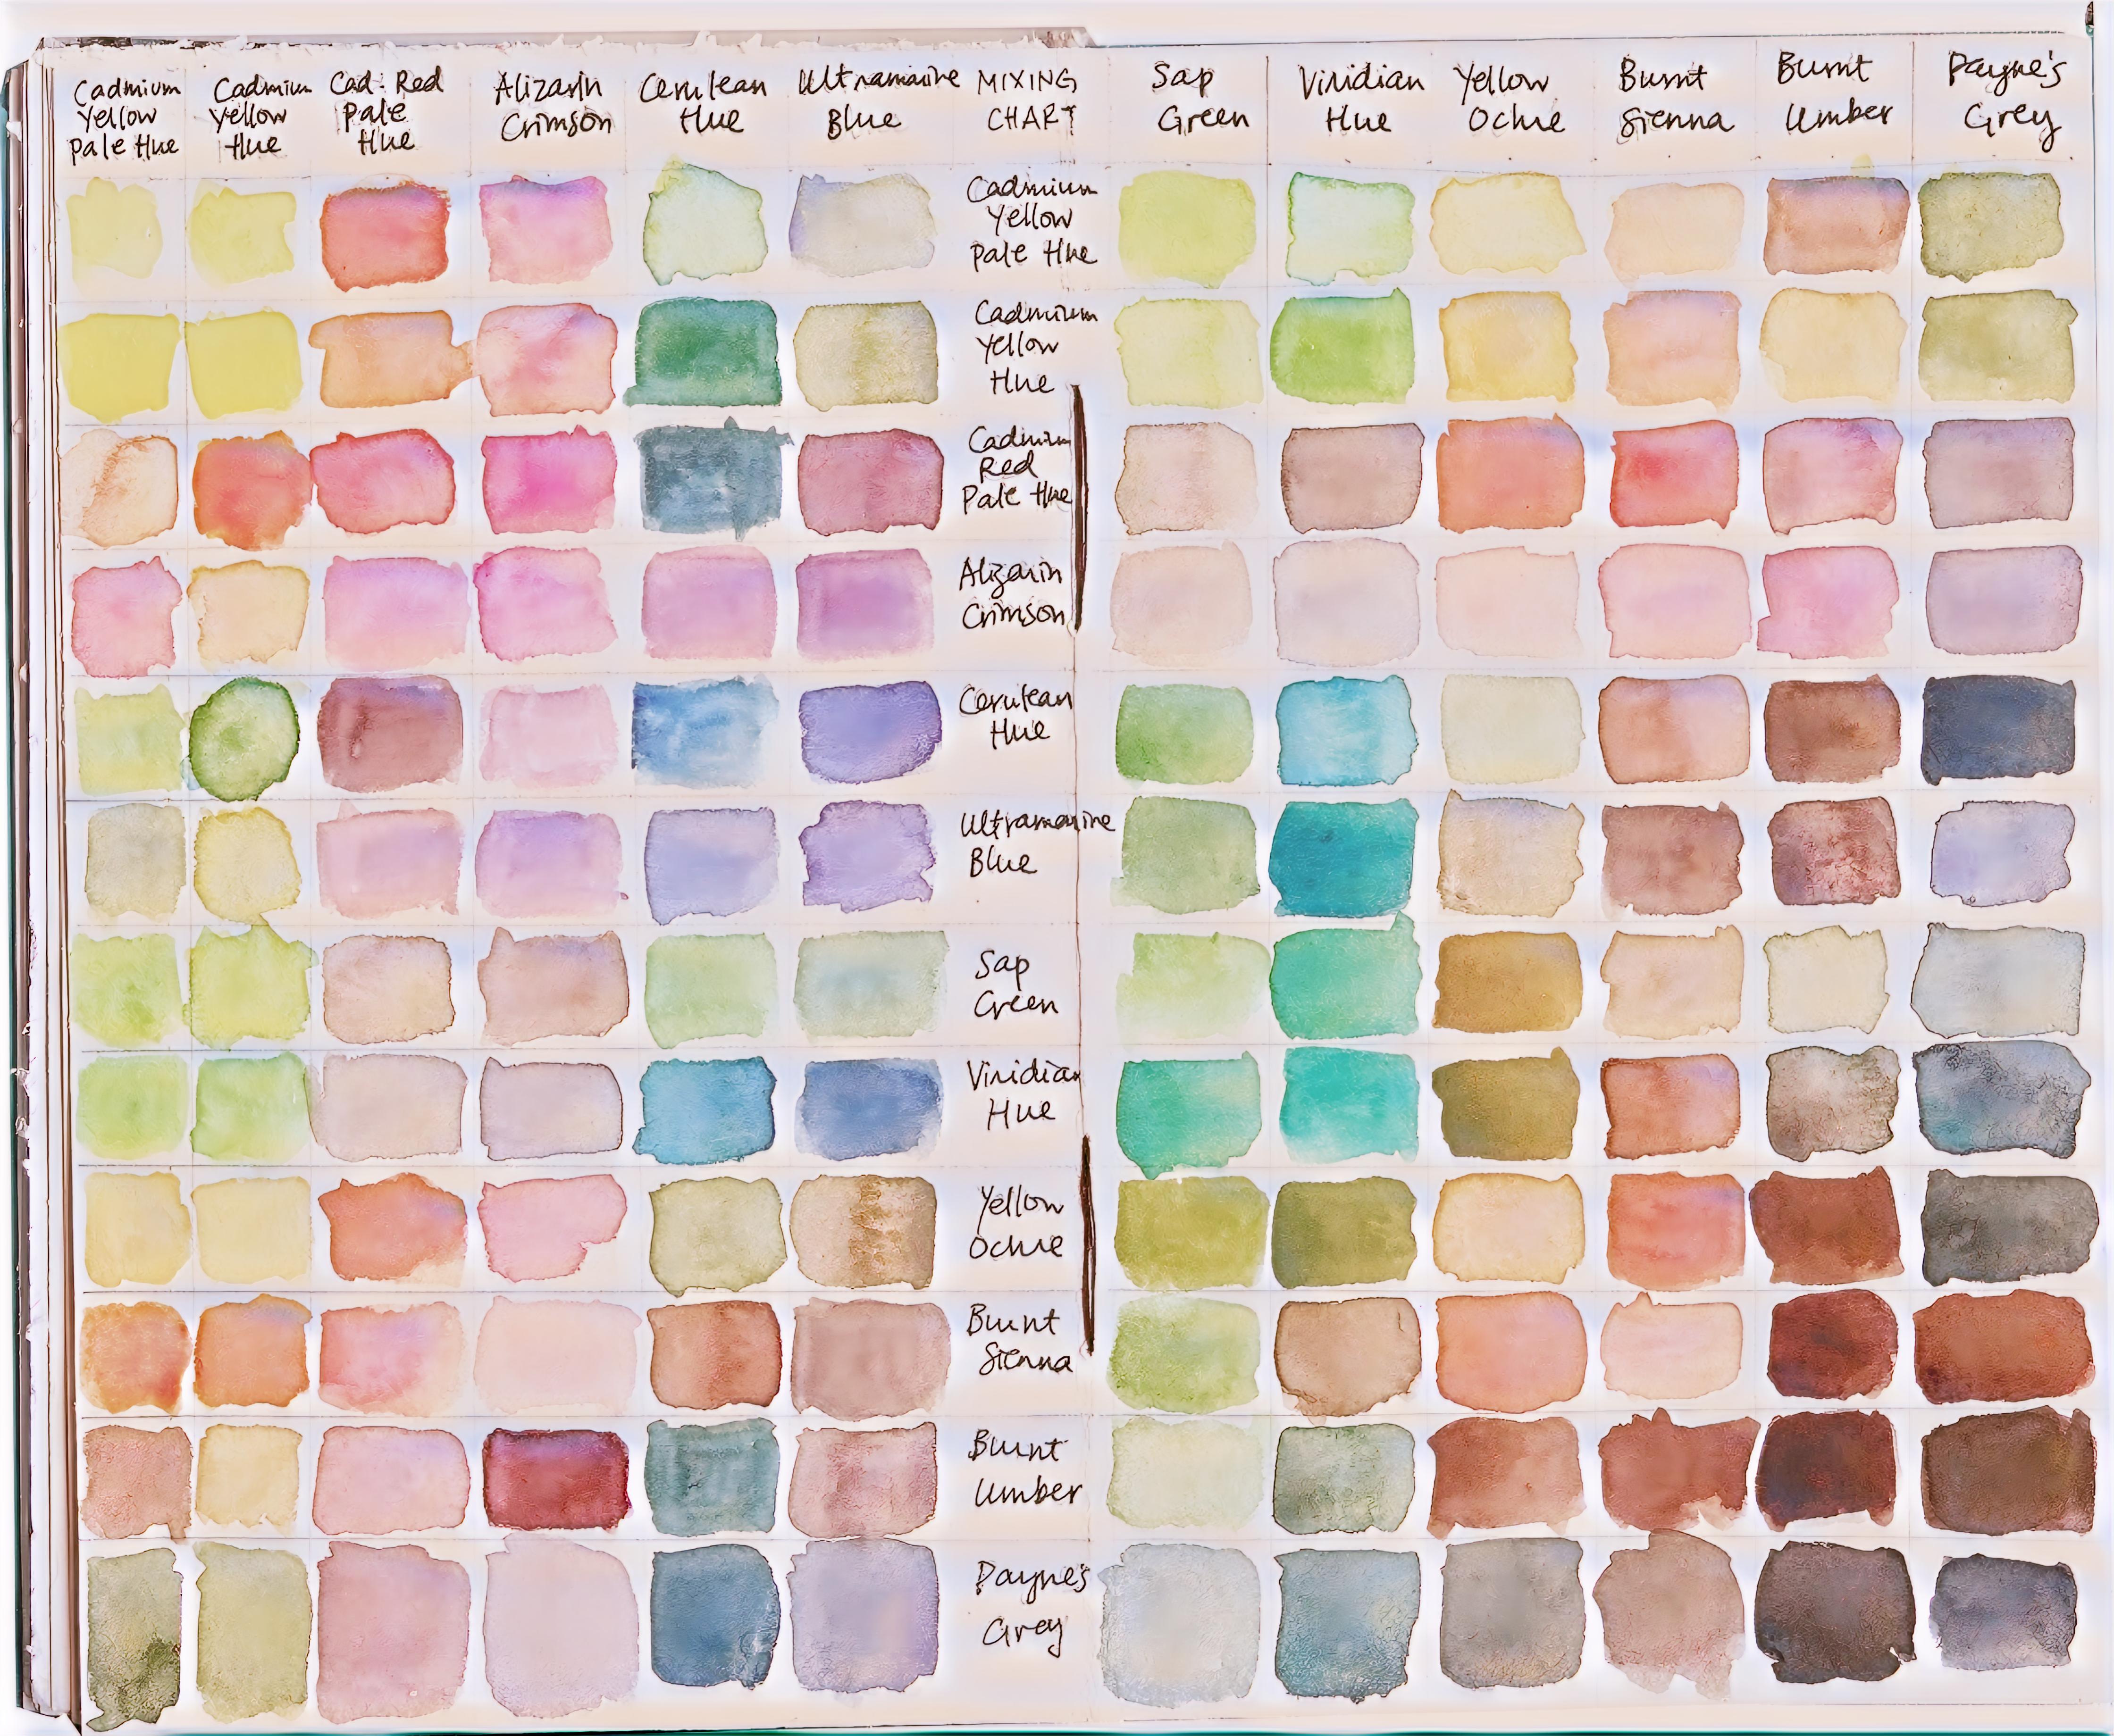 Cadmium
Yellow
Pale Hue
Cadmium
Yellow
Hue
Cad. Red
Pale
Hue
Alizarin
Crimson
Cerulean
Hue
Ultramarine
Blue
MIXING
CHART
Sap
Green
Viridian
Hue
Yellow
Ochre
Burnt
Sienna
Burnt
Umber
Payne's
Grey
Cadmium
Yellow
Pale Hue
Cadmium
Yellow
Hue
Cadmium
Red
Pale Hue
Alizarin
Crimson
Cerulean
Hue
Ultramarine
Blue
Sap
Green
Viridian
Hue
Yellow
Ochre
Burnt
Sienna
Burnt
Umber
Payne's
Grey